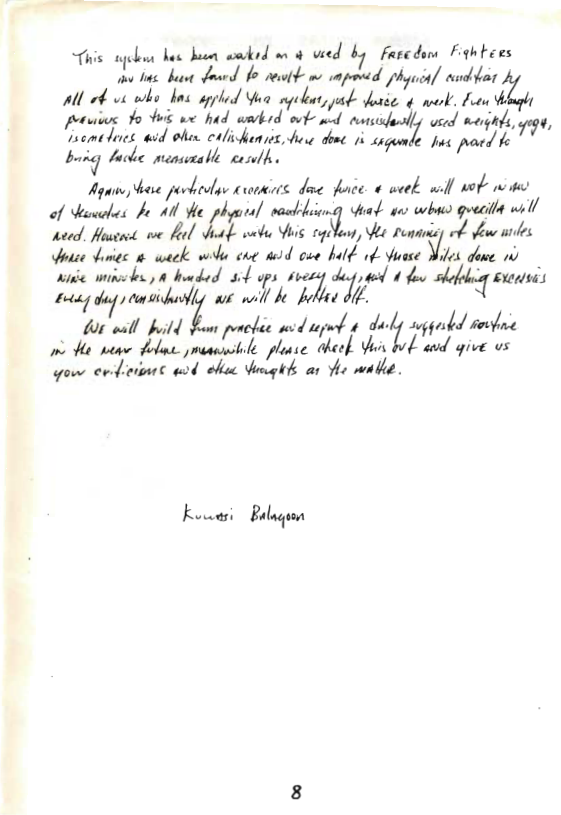 This system has been worked on & used by FREEDOM Fighters
has been found to result in improved physical condition by
All of us who has applied the system, just twice a week. Even though
previous to this we had worked out and consistantly used weights, yoga,
isometrics and other calisthenics, these done is sequnde has proved to
bring faster measurable results.
Again, these particular excercises done twice a week will not in
of themselves be All the physical conditioning that an urban guerilla will
need. However we feel that with this system, the running of few miles
three times a week with one and one half of those miles done in
nine minutes, a hundred sit ups every day, and a few stretching excersies
every day, consistantly we will be better off.
We will build from practice and report a daily suggested routine
in the near future, meanwhile please check this out and give us
your criticisms and other thoughts on the matter.
Kuwasi Balagoon
8